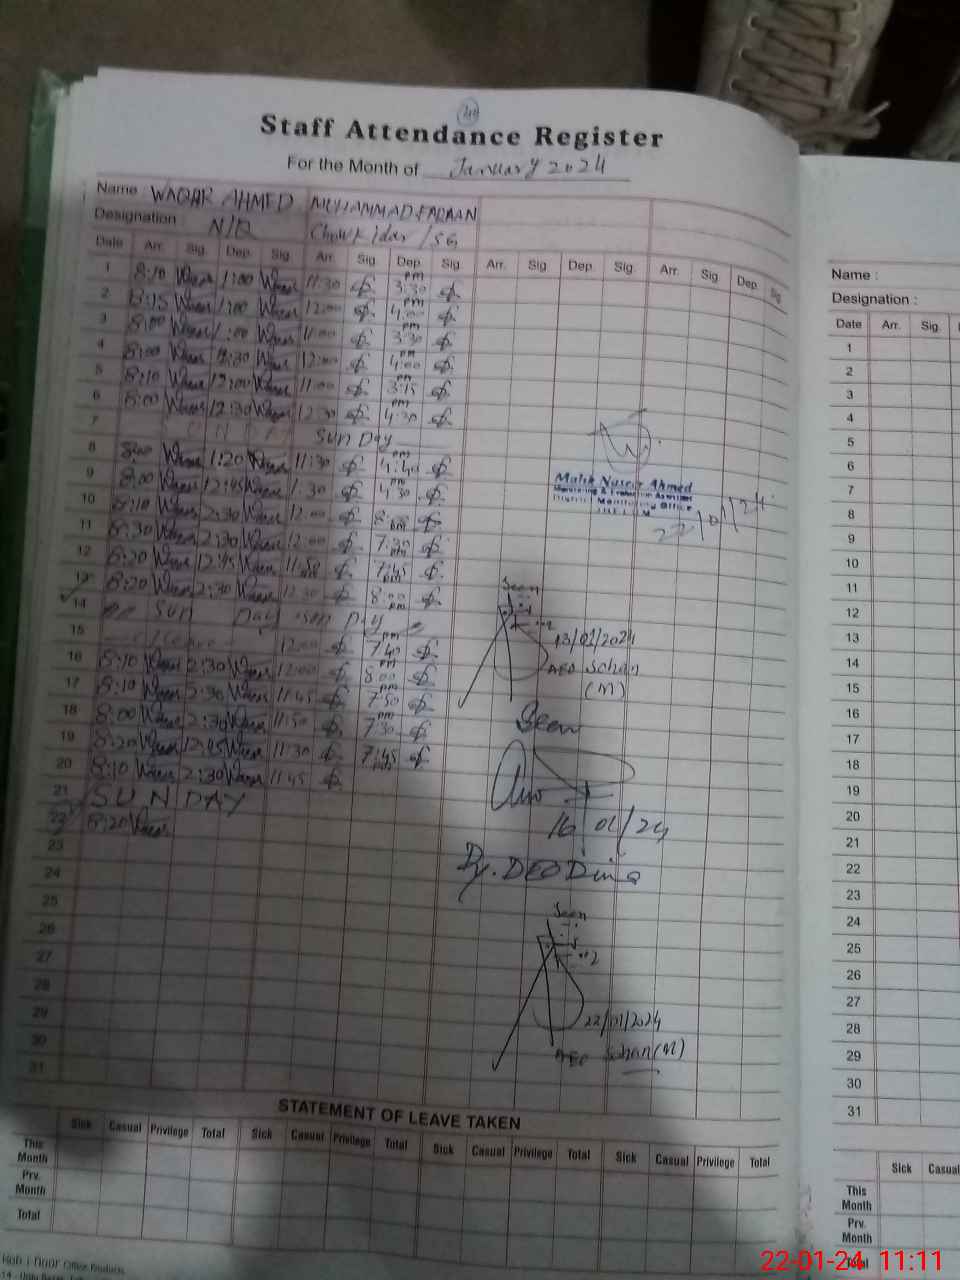 Staff Attendance Register
For the Month of January 2024
Name WAQAR AHMED MUHAMMAD FARAAN
Designation N/Q Chowkidar / SG
Date Arr. Sig. Dep. Sig. Arr. Sig. Dep. Sig. Arr. Sig. Dep. Sig. Arr. Sig. Dep. Sig.
1 8:10 Waqar 1:00 Waqar 11:30 pm 3:30
2 8:15 Waqar 1:00 Waqar 12:00 4:00
3 8:00 Waqar 1:00 Waqar 11:00 pm 3:30
4 8:00 Waqar Waqar 12:00 pm 4:00
5 8:10 Waqar 12:00 Waqar 11:00 pm 3:15
6 8:00 Waqar 12:30 Waqar 12:30 4:30
7 Sun Day
8 8:00 Waqar 1:20 Waqar 11:30 pm 4:40
9 8:00 Waqar 12:45 Waqar 1:30 pm 4:30
10 8:10 Waqar 2:30 Waqar 12:00
11 8:30 Waqar 2:30 Waqar 12:00 7:30
12 8:20 Waqar 12:45 Waqar 11:50 7:45
13 8:20 Waqar 2:30 Waqar 12:30 8:00 pm
14 Sun Day Sun Day
15 Leave 12:00 pm 7:40
16 8:10 Waqar 2:30 Waqar 12:00 pm 8:00
17 8:10 Waqar 2:30 Waqar 11:45 pm 7:50
18 8:00 Waqar 2:30 Waqar 11:50 pm 7:30
19 8:20 Waqar 12:45 Waqar 11:30 7:45
20 8:10 Waqar 2:30 Waqar 11:45
21 SUNDAY
22 8:20 Waqar
23
24
25
26
27
28
29
30
31
Malik Naseer Ahmed
Monitoring & Evaluation Assistant
District Monitoring Office
JHELUM
22/01/24
Seen
13/01/2024
AEO Sohan
(M)
Seen
16/01/24
Dy. DEO Dina
Seen
22/01/2024
AEO Sohan (M)
STATEMENT OF LEAVE TAKEN
Sick Casual Privilege Total Sick Casual Privilege Total Sick Casual Privilege Total Sick Casual Privilege Total
This Month
Prv. Month
Total
Office Products
Name :
Designation :
Date Arr. Sig.
1
2
3
4
5
6
7
8
9
10
11
12
13
14
15
16
17
18
19
20
21
22
23
24
25
26
27
28
29
30
31
Sick Casual
This Month
Prv. Month
Total
22-01-24 11:11